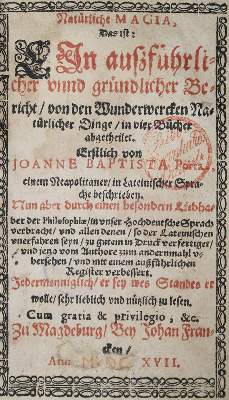 Natürliche MAGIA,
Das ist:
Ein außführli-
cher vnnd gründlicher Be-
richt / von den Wunderwercken Na-
türlicher Dinge / in vier Bücher
abgetheilet.
Erstlich von
JOANNE BAPTISTA Porta,
einem Neapolitaner / in Lateinischer Spra-
che beschrieben.
Nun aber durch einen besondern Liebha-
ber der Philosophiæ / in vnser Hochdeutsche Sprach
verbracht / vnd allen denen / so der Lateinischen
vnerfahren seyn / zu gutem in Druck verfertiget /
vnd jetzo vom Authore zum andernmahl v-
bersehen / vnd mit einem außführlichen
Register verbessert.
Jedermenniglich / er sey wes Standes er
wolle / sehr lieblich vnd nützlich zu lesen.
Cum gratia & privilegio, &c.
Zu Magdeburg / Bey Johan Fran-
cken /
Anno XVII.